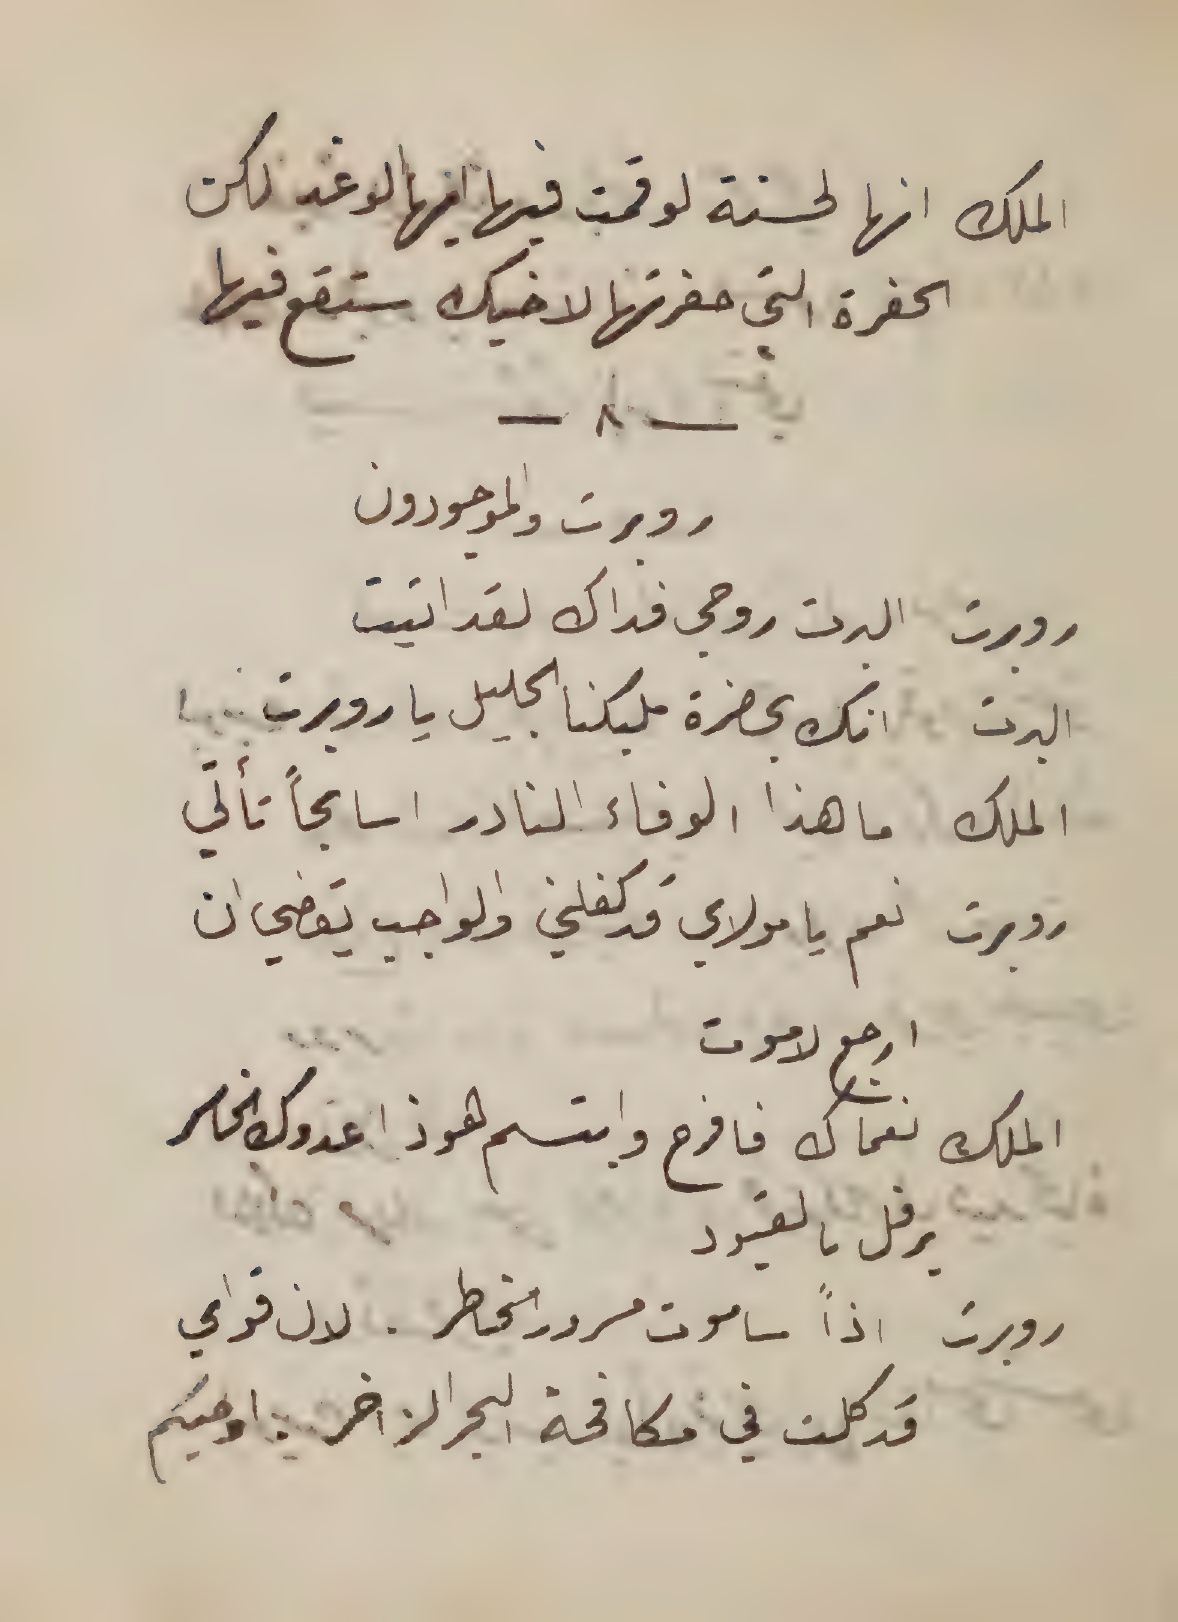 الملك انها لحسنة لو قمت فيها ايها الوغد لكن
الحفرة التي حفرتها لاخيك ستقع فيها
— ٨ —
روبرت والموجودون
روبرت البرت روحي فداك لقد اتيت
البرت انك بحضرة مليكنا الجليل يا روبرت
الملك ما هذا الوفاء النادر اسابحاً تأتي
روبرت نعم يا مولاي قد كفلني والواجب يقضي ان
ارجع لاموت
الملك نعماك فافرح وابتسم هوذا عدوك الخاسر
يرفل بالقيود
روبرت اذاً ساموت مسرور الخاطر . لان قواي
قد كلت في مكافحة البحر الزاخر . اوصيكم